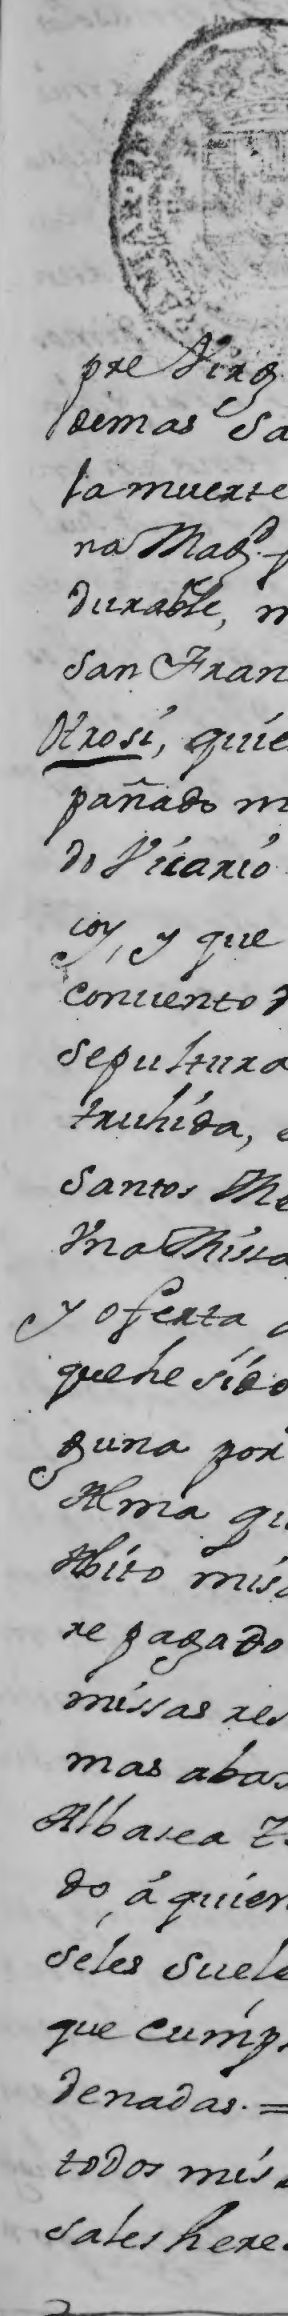 pre Virg
demas Sa
la muerte
na Magd.
durable, m
San Fran
Otrosi, quie
pañado m
do Vicario
coy, y que
convento
sepultura
truhida, e
Santos Me
Vna Missa
y oferta
que he sido
guna por
Alma qu
Abito miss
re pagado
missas res
mas abax
Albasea
do, á quien
seles suele
que cump
denadas. =
todos mis
sales here